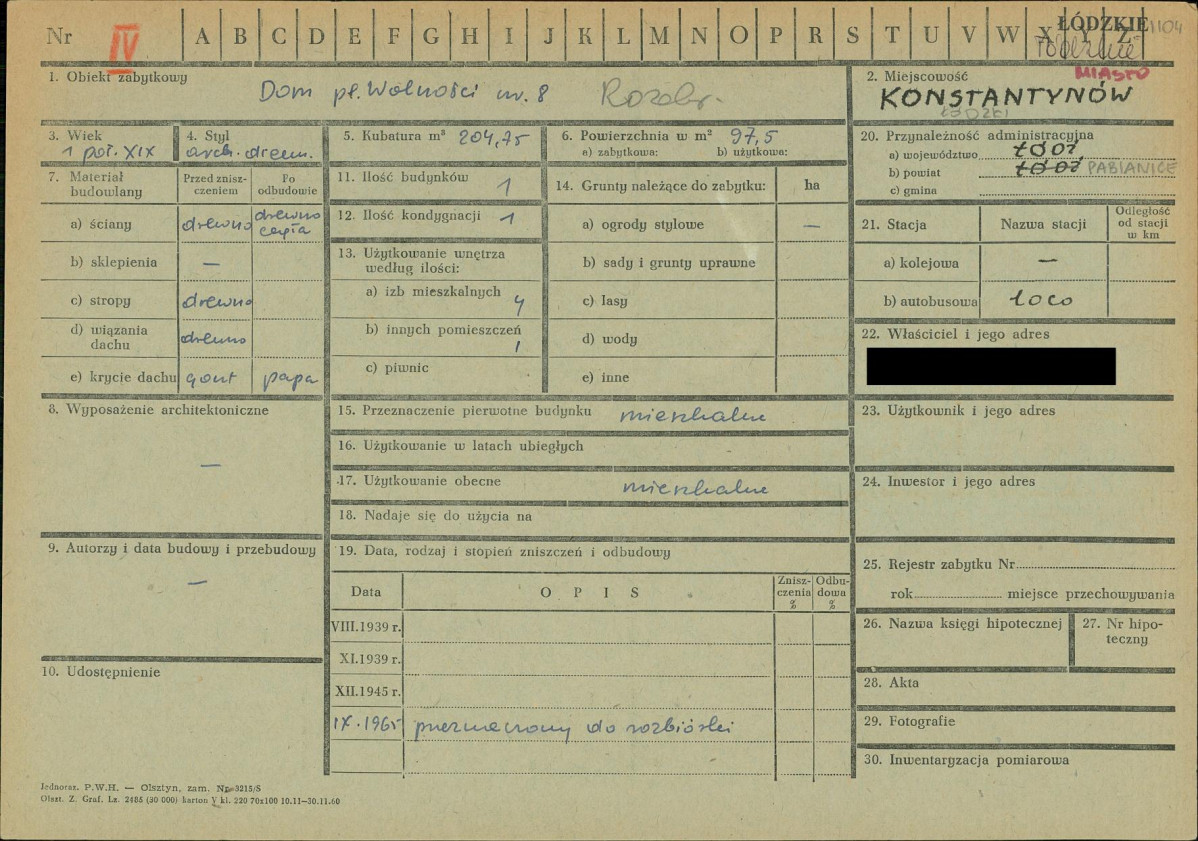 Nr IV A B C D E F G H I J K L M N O P R S T U V W X Y Z ŁÓDZKIE 1104
MIASTO
1. Obiekt zabytkowy
Dom pl. Wolności nr. 8 Rozebr.
2. Miejscowość
KONSTANTYNÓW
ŁÓDZKI
3. Wiek
1 poł. XIX
4. Styl
arch. drewn.
5. Kubatura m³ 204,75
6. Powierzchnia w m² 97,5
a) zabytkowa: b) użytkowa:
20. Przynależność administracyjna
a) województwo ŁÓDŹ
b) powiat ŁÓDŹ PABIANICE
c) gmina
7. Materiał budowlany
Przed znisz-
czeniem
Po
odbudowie
a) ściany drewno drewno
cegła
b) sklepienia —
c) stropy drewno
d) wiązania
dachu drewno
e) krycie dachu gont papa
11. Ilość budynków 1
12. Ilość kondygnacji 1
13. Użytkowanie wnętrza
według ilości:
a) izb mieszkalnych 4
b) innych pomieszczeń
1
c) piwnic
14. Grunty należące do zabytku: ha
a) ogrody stylowe —
b) sady i grunty uprawne
c) lasy
d) wody
e) inne
21. Stacja Nazwa stacji Odległość
od stacji
w km
a) kolejowa —
b) autobusowa loco
22. Właściciel i jego adres
8. Wyposażenie architektoniczne
—
15. Przeznaczenie pierwotne budynku mieszkalne
16. Użytkowanie w latach ubiegłych
17. Użytkowanie obecne mieszkalne
18. Nadaje się do użycia na
23. Użytkownik i jego adres
24. Inwestor i jego adres
9. Autorzy i data budowy i przebudowy
—
19. Data, rodzaj i stopień zniszczeń i odbudowy
Data O P I S Znisz-
czenia
% Odbu-
dowa
%
VIII.1939 r.
XI.1939 r.
XII.1945 r.
IX.1965 przeznaczony do rozbiórki
25. Rejestr zabytku Nr
rok miejsce przechowywania
26. Nazwa księgi hipotecznej
27. Nr hipo-
teczny
10. Udostępnienie
28. Akta
29. Fotografie
30. Inwentaryzacja pomiarowa
Jednoraz. P.W.H. — Olsztyn, zam. Nr 3215/S
Olszt. Z. Graf. Lz. 2485 (30 000) karton V kl. 220 70x100 10.11—30.11.60